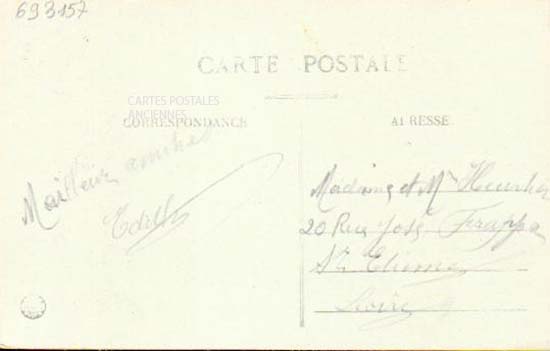 693157
CARTE POSTALE
CARTES POSTALES
ANCIENNES
CORRESPONDANCE
Meilleur amitiés
Edith
ADRESSE
Madame et Mr
20 Rue José Frappa
St Etienne
Loire